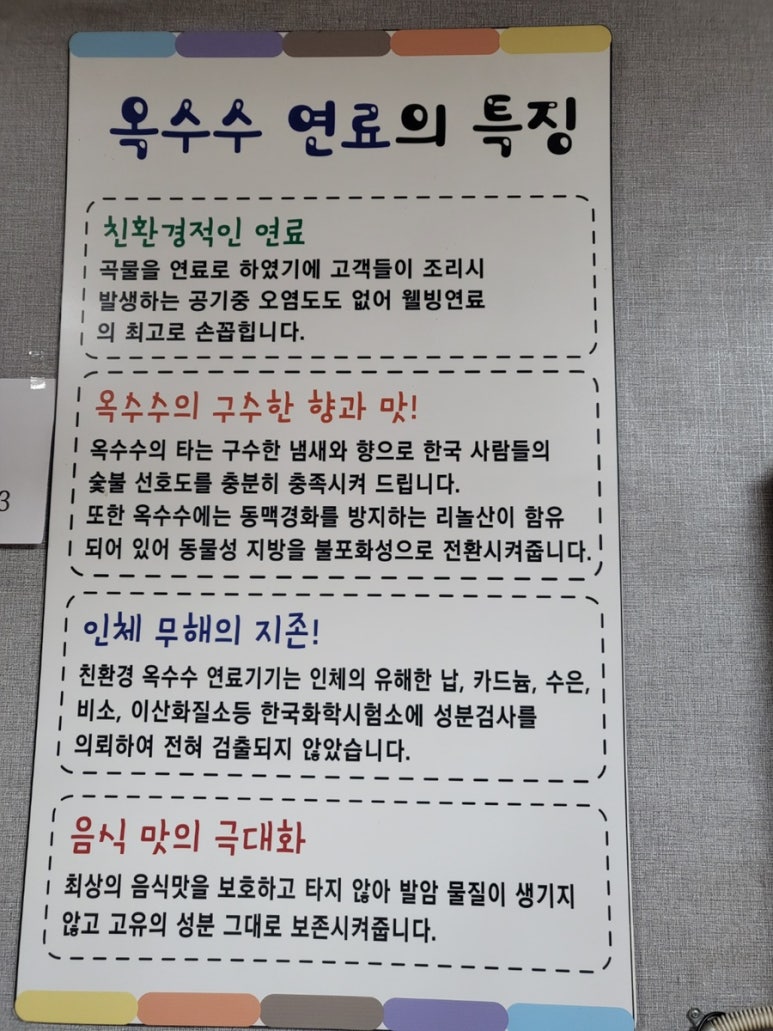 옥수수 연료의 특징
친환경적인 연료
곡물을 연료로 하였기에 고객들이 조리시
발생하는 공기중 오염도도 없어 웰빙연료
의 최고로 손꼽힙니다.
옥수수의 구수한 향과 맛!
옥수수의 타는 구수한 냄새와 향으로 한국 사람들의
숯불 선호도를 충분히 충족시켜 드립니다.
또한 옥수수에는 동맥경화를 방지하는 리놀산이 함유
되어 있어 동물성 지방을 불포화성으로 전환시켜줍니다.
3
인체 무해의 지존!
친환경 옥수수 연료기기는 인체의 유해한 납, 카드늄, 수은,
비소, 이산화질소등 한국화학시험소에 성분검사를
의뢰하여 전혀 검출되지 않았습니다.
음식 맛의 극대화
최상의 음식맛을 보호하고 타지 않아 발암 물질이 생기지
않고 고유의 성분 그대로 보존시켜줍니다.